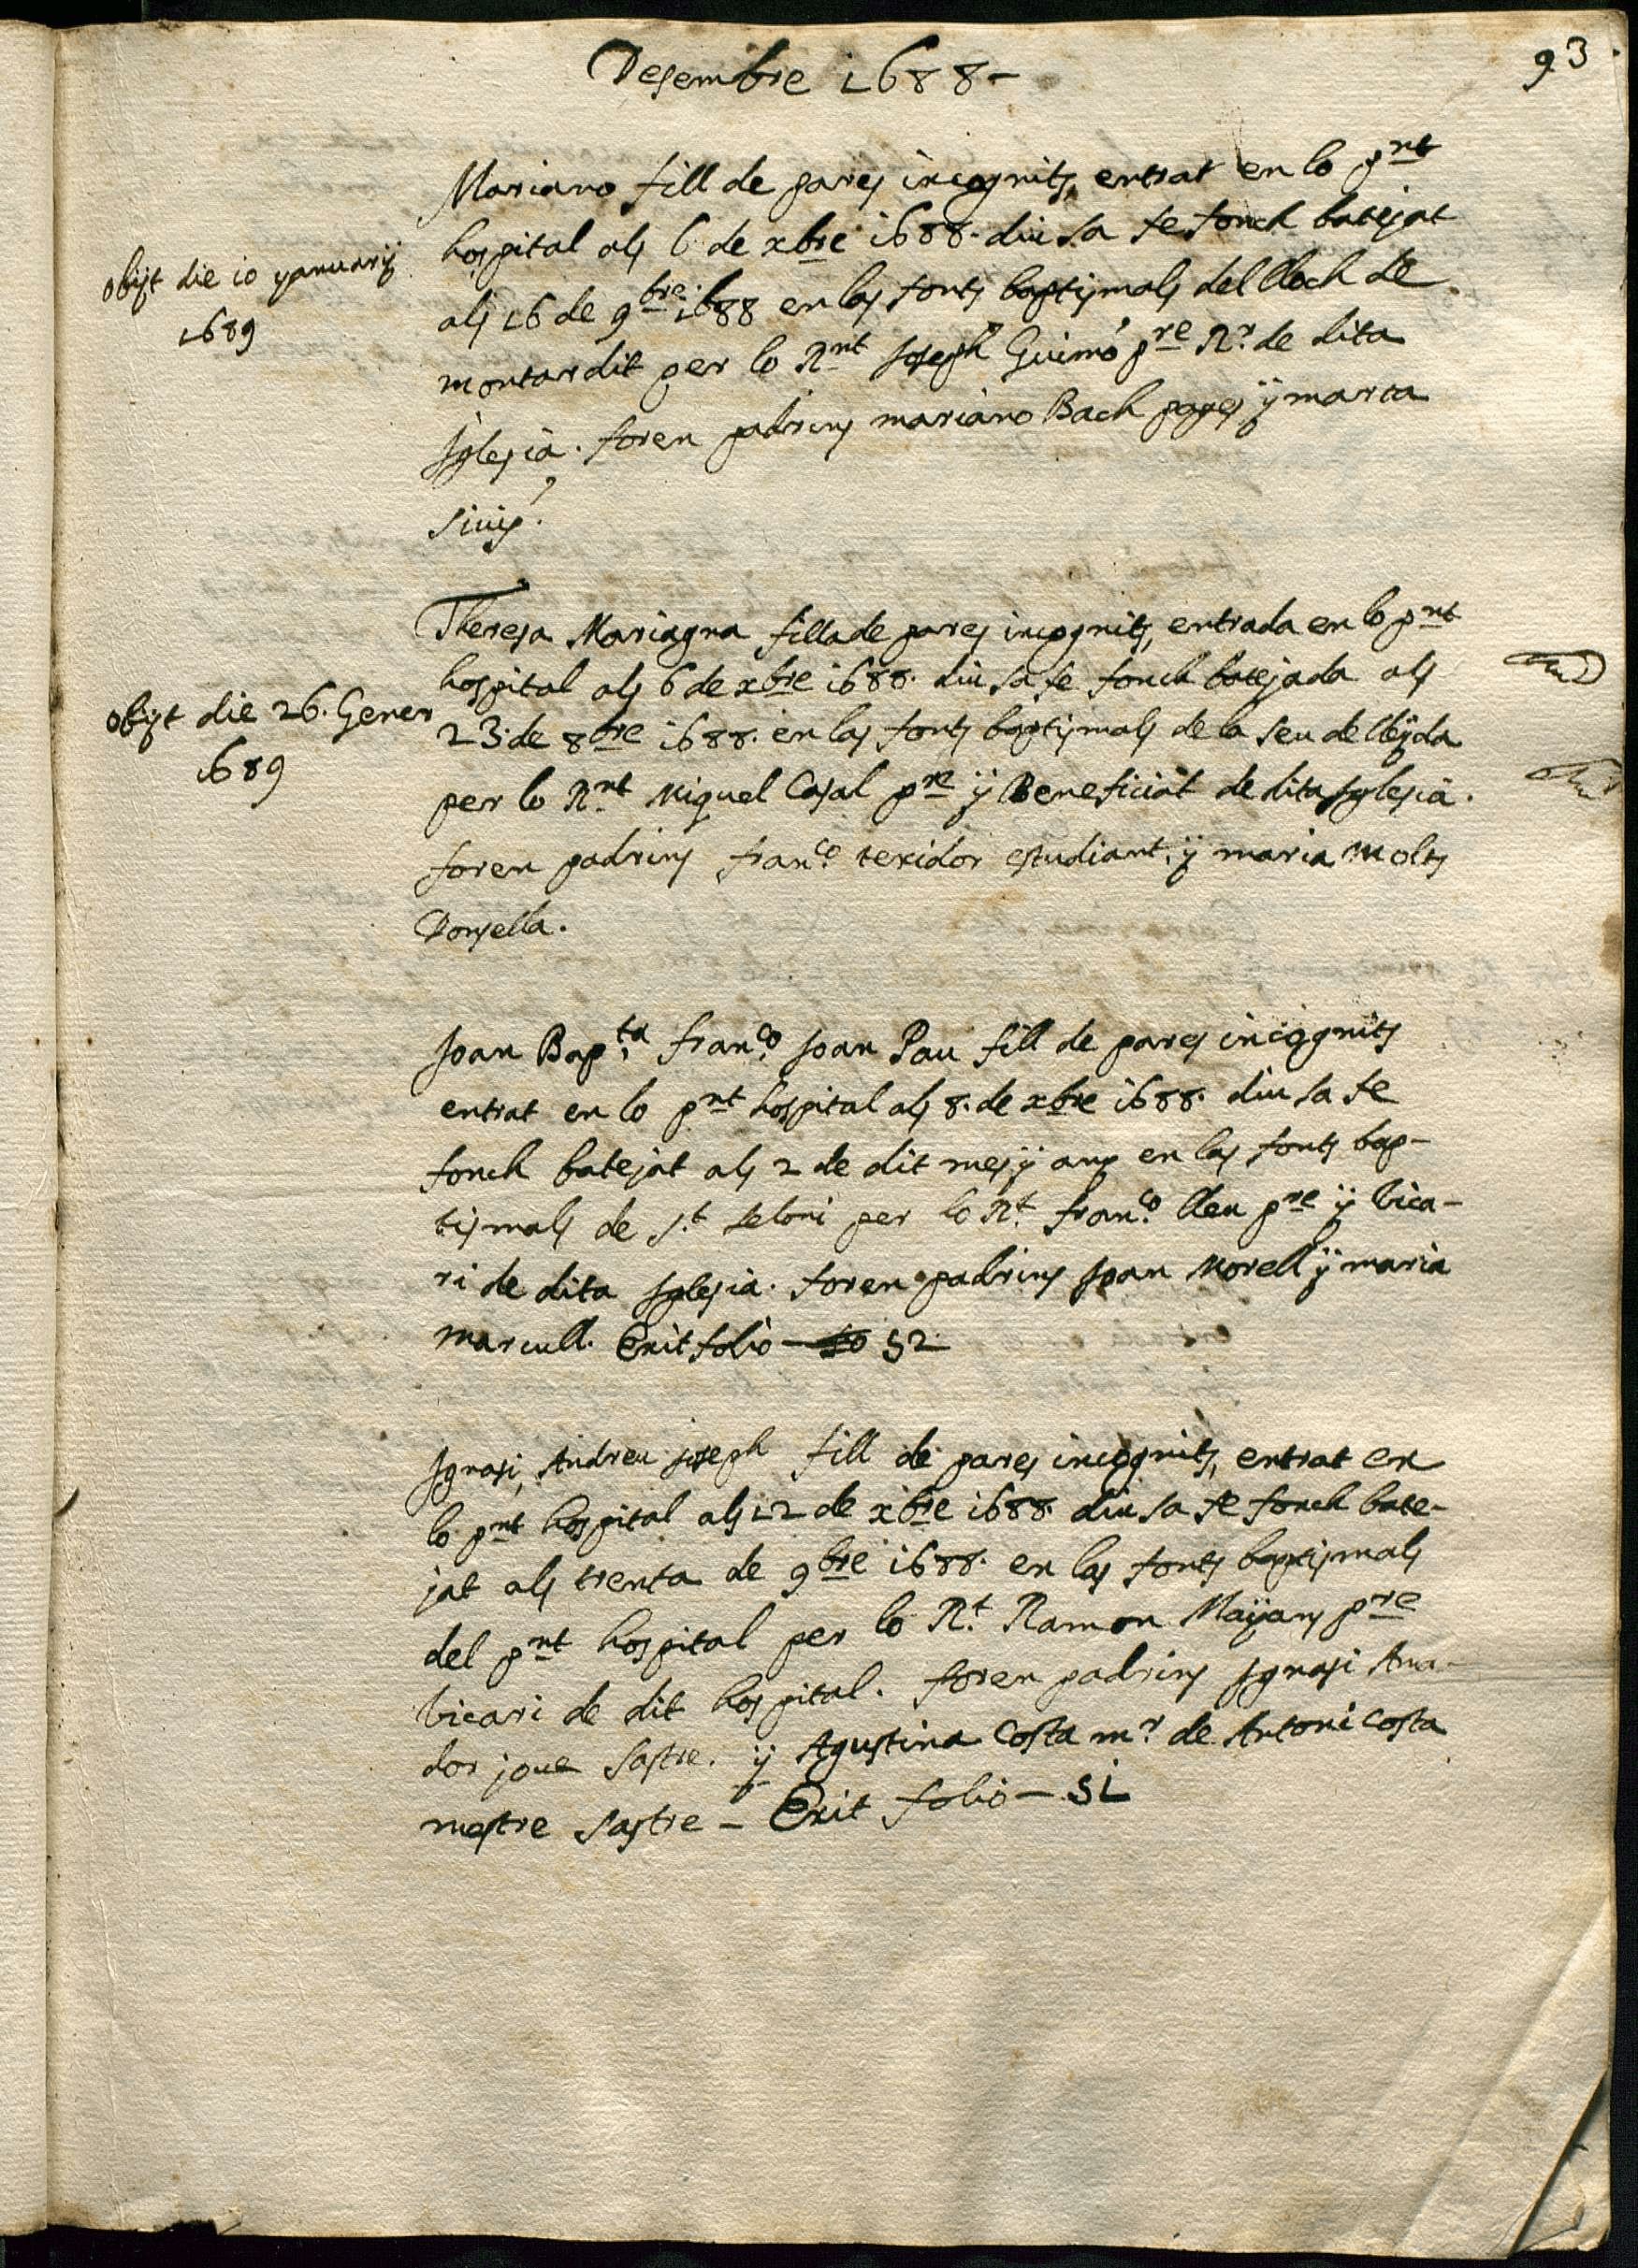 Desembre 1688-
93
Mariano fill de pares incognits, entrat en lo pnt
hospital als 6 de xbre 1688. diu sa fe fonch batejat
als 16 de 9bre 1688 en las fonts baptismals del lloch de
montardit per lo Rnt Joseph Guimo pre Rr. de dita
Iglesia. foren padrins mariano Bach pages ÿ maria
obijt die 10 yanuarij
1689
Theresa Mariagna filla de pares incognits, entrada en lo pnt
hospital als 6 de xbre 1688. diu sa fe fonch batejada als
23. de 8bre 1688. en las fonts baptismals de la seu de lleÿda
per lo Rnt Miquel Casal pre ÿ Beneficiat de dita Iglesia.
foren padrins franco. texidor estudiant. ÿ maria Molts
Donsella.
obijt die 26. Gener
1689
Joan Bapta franco. Joan Pau fill de pares incognits
entrat en lo pnt hospital als 8. de xbre 1688. diu sa fe
fonch batejat als 2 de dit mes ÿ anÿ en las fonts bap-
tismals de st. seloni per lo Rt. franco. lleu pre ÿ vica-
ri de dita Iglesia. foren padrins Joan Morell ÿ maria
marcull. Exit folio - 52
Ignasi, Andreu joseph fill de pares incognits, entrat en
lo pnt hospital als 12 de xbre 1688. diu sa fe fonch bate-
jat als trenta de 9bre 1688. en las fonts baptismals
del pnt hospital per lo Rt. Ramon Maÿans pre
vicari de dit hospital. foren padrins Ignasi Ama-
dor jove sastre. ÿ Agustina Costa mr. de Antoni Costa
mestre sastre - Exit folio - 51